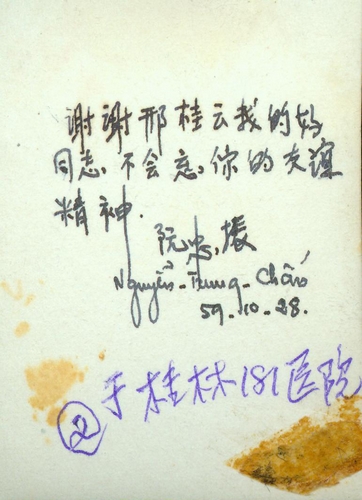 谢谢邢桂云我的好
同志、不会忘、你的友谊
精神.
阮忠.振
Nguyễn-Trung-Chấn
59-10-28.
② 于桂林181医院